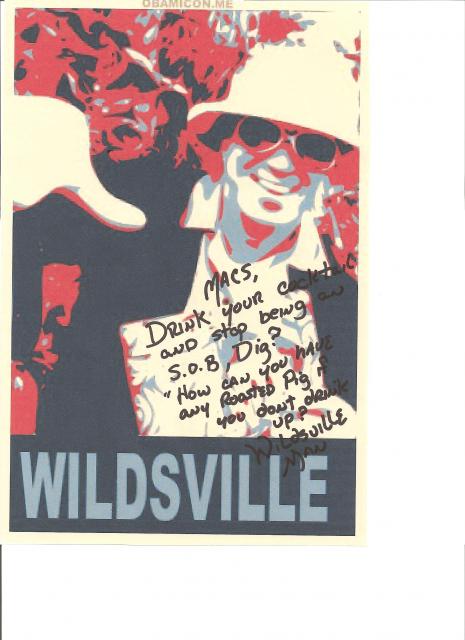 OBAMICON.ME
MACS,
DRINK YOUR COCKTAIL
AND STOP BEING AN
S.O.B, DIG?
"HOW CAN YOU HAVE
ANY ROASTED PIG IF
YOU DON'T DRINK
UP?
WILDSVILLE
MAN
WILDSVILLE